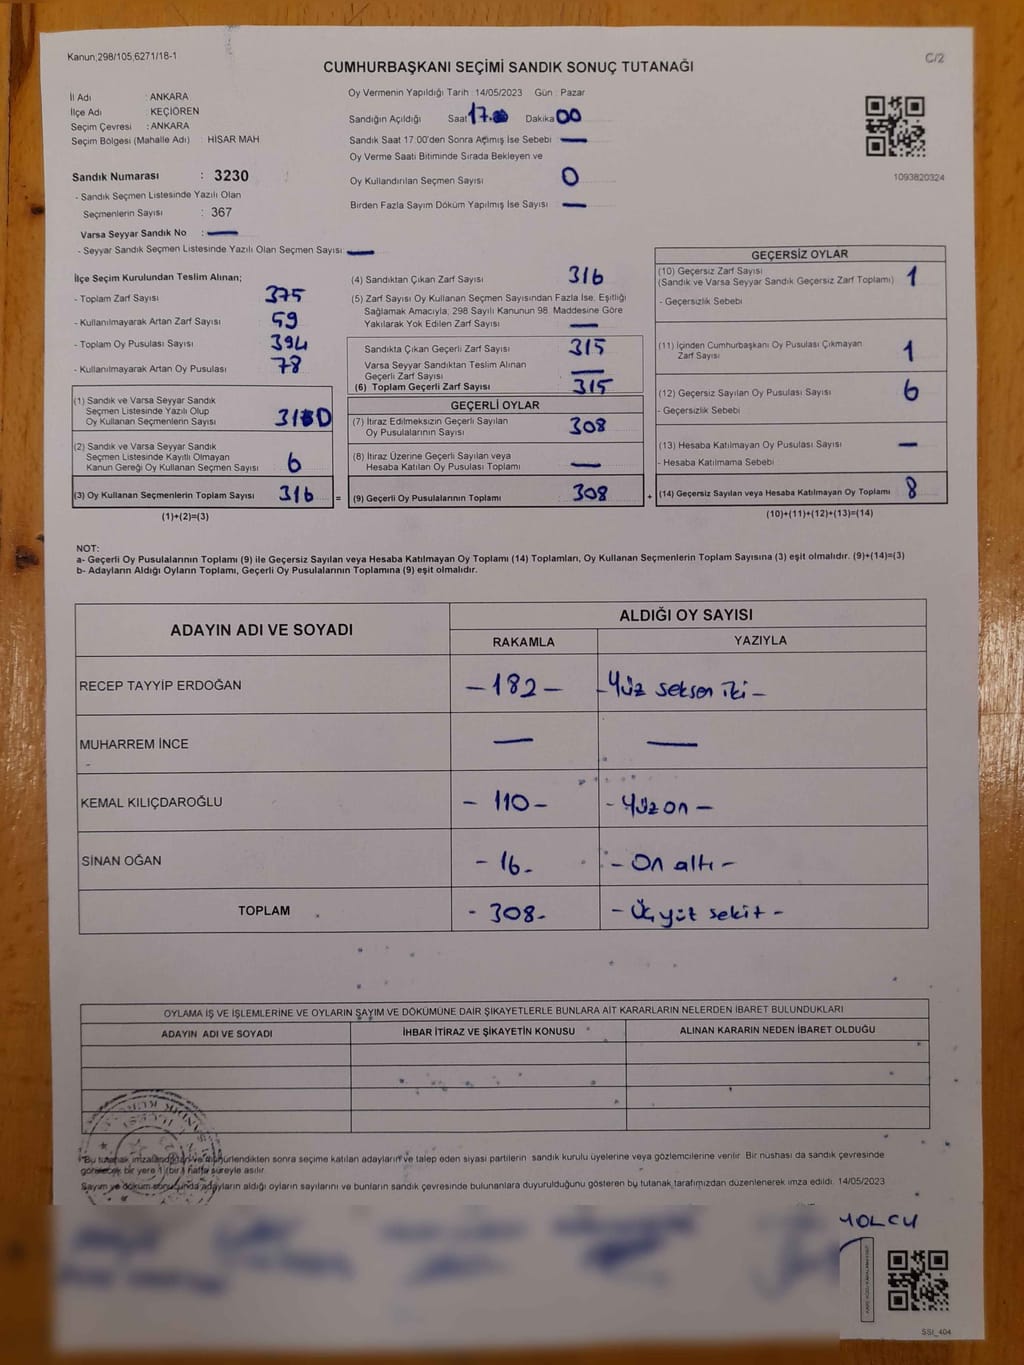 Kanun;298/105,6271/18-1
C/2
CUMHURBAŞKANI SEÇİMİ SANDIK SONUÇ TUTANAĞI
İl Adı : ANKARA
İlçe Adı : KEÇİÖREN
Seçim Çevresi : ANKARA
Seçim Bölgesi (Mahalle Adı) HİSAR MAH
Oy Vermenin Yapıldığı Tarih : 14/05/2023 Gün : Pazar
Sandığın Açıldığı Saat 17.00 Dakika 00
Sandık Saat 17:00'den Sonra Açılmış İse Sebebi —
Oy Verme Saati Bitiminde Sırada Bekleyen ve
Oy Kullandırılan Seçmen Sayısı 0
Birden Fazla Sayım Döküm Yapılmış İse Sayısı —
1093820324
Sandık Numarası : 3230
- Sandık Seçmen Listesinde Yazılı Olan
Seçmenlerin Sayısı : 367
Varsa Seyyar Sandık No : —
- Seyyar Sandık Seçmen Listesinde Yazılı Olan Seçmen Sayısı: —
İlçe Seçim Kurulundan Teslim Alınan;
- Toplam Zarf Sayısı 375
- Kullanılmayarak Artan Zarf Sayısı 59
- Toplam Oy Pusulası Sayısı 394
- Kullanılmayarak Artan Oy Pusulası 78
(1) Sandık ve Varsa Seyyar Sandık
Seçmen Listesinde Yazılı Olup
Oy Kullanan Seçmenlerin Sayısı
(2) Sandık ve Varsa Seyyar Sandık
Seçmen Listesinde Kayıtlı Olmayan
Kanun Gereği Oy Kullanan Seçmen Sayısı 6
(3) Oy Kullanan Seçmenlerin Toplam Sayısı 316 =
(1)+(2)=(3)
(4) Sandıktan Çıkan Zarf Sayısı 316
(5) Zarf Sayısı Oy Kullanan Seçmen Sayısından Fazla İse, Eşitliği
Sağlamak Amacıyla, 298 Sayılı Kanunun 98. Maddesine Göre
Yakılarak Yok Edilen Zarf Sayısı —
Sandıkta Çıkan Geçerli Zarf Sayısı 315
Varsa Seyyar Sandıktan Teslim Alınan
Geçerli Zarf Sayısı —
(6) Toplam Geçerli Zarf Sayısı 315
GEÇERLİ OYLAR
(7) İtiraz Edilmeksizin Geçerli Sayılan
Oy Pusulalarının Sayısı 308
(8) İtiraz Üzerine Geçerli Sayılan veya
Hesaba Katılan Oy Pusulası Toplamı —
(9) Geçerli Oy Pusulalarının Toplamı 308 +
GEÇERSİZ OYLAR
(10) Geçersiz Zarf Sayısı
(Sandık ve Varsa Seyyar Sandık Geçersiz Zarf Toplamı) 1
- Geçersizlik Sebebi
(11) İçinden Cumhurbaşkanı Oy Pusulası Çıkmayan
Zarf Sayısı 1
(12) Geçersiz Sayılan Oy Pusulası Sayısı 6
- Geçersizlik Sebebi
(13) Hesaba Katılmayan Oy Pusulası Sayısı —
- Hesaba Katılmama Sebebi
(14) Geçersiz Sayılan veya Hesaba Katılmayan Oy Toplamı 8
(10)+(11)+(12)+(13)=(14)
NOT:
a- Geçerli Oy Pusulalarının Toplamı (9) ile Geçersiz Sayılan veya Hesaba Katılmayan Oy Toplamı (14) Toplamları, Oy Kullanan Seçmenlerin Toplam Sayısına (3) eşit olmalıdır. (9)+(14)=(3)
b- Adayların Aldığı Oyların Toplamı, Geçerli Oy Pusulalarının Toplamına (9) eşit olmalıdır.
ADAYIN ADI VE SOYADI
ALDIĞI OY SAYISI
RAKAMLA YAZIYLA
RECEP TAYYİP ERDOĞAN -182- -Yüz seksen iki-
MUHARREM İNCE — —
KEMAL KILIÇDAROĞLU -110- -Yüz on-
SİNAN OĞAN -16- -On altı-
TOPLAM -308- -Üçyüz sekiz-
OYLAMA İŞ VE İŞLEMLERİNE VE OYLARIN SAYIM VE DÖKÜMÜNE DAİR ŞİKAYETLERLE BUNLARA AİT KARARLARIN NELERDEN İBARET BULUNDUKLARI
ADAYIN ADI VE SOYADI İHBAR İTİRAZ VE ŞİKAYETİN KONUSU ALINAN KARARIN NEDEN İBARET OLDUĞU
*Bu tutanak imzalandıktan ve mühürlendikten sonra seçime katılan adayların ve talep eden siyasi partilerin sandık kurulu üyelerine veya gözlemcilerine verilir. Bir nüshası da sandık çevresinde
görülebilecek bir yere 1 (bir) hafta süreyle asılır.
Sayım ve döküm sonucunda adayların aldığı oyların sayılarını ve bunların sandık çevresinde bulunanlara duyurulduğunu gösteren bu tutanak tarafımızdan düzenlenerek imza edildi. 14/05/2023
YOLCU
SSI_404